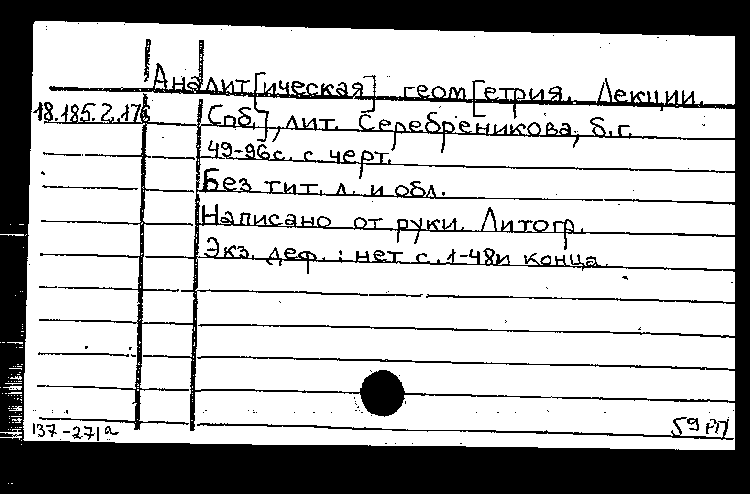 Аналит[ическая] геом[етрия. Лекции.
18.185.2.176 Спб.], лит. Серебреникова, б.г.
49-96с. с черт.
Без тит. л. и обл.
Написано от руки. Литогр.
Экз. деф.: нет с. 1-48и конца
137-271а 59 РП